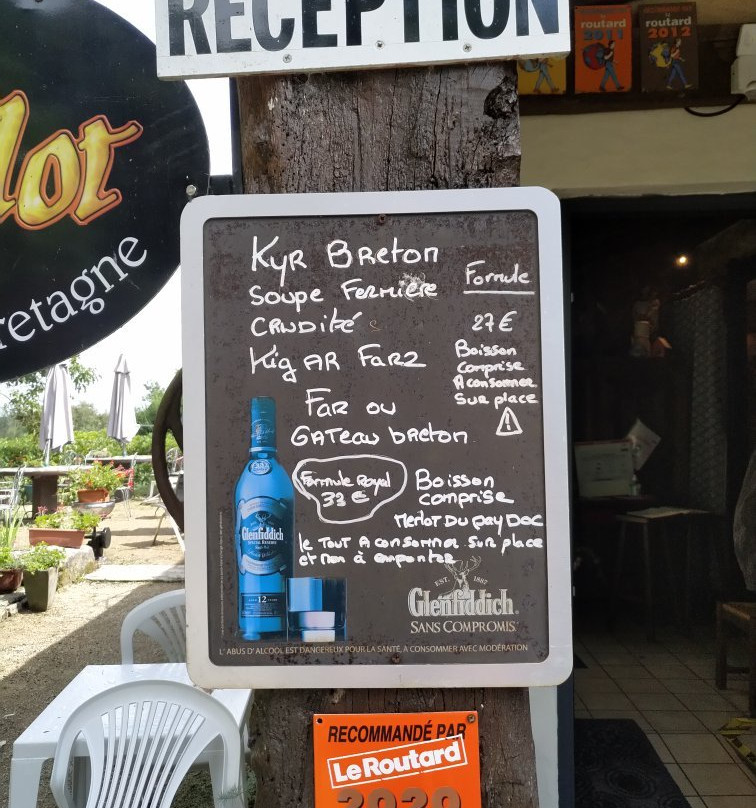 RECEPTION
routard
2011
routard
2012
lot
retagne
Kyr Breton
Soupe Fermière
Crudité
Kig AR Farz
Far ou
Gateau breton
Formule
27€
Boisson
comprise
A consommer
Sur place
Formule Royal
33 €
Boisson
comprise
Merlot Du pay Doc
le tout A consommer sur place
et non à emporter
Glenfiddich
12
EST. 1887
Glenfiddich
SANS COMPROMIS
L'ABUS D'ALCOOL EST DANGEREUX POUR LA SANTÉ, A CONSOMMER AVEC MODÉRATION
RECOMMANDÉ PAR
Le Routard
2020